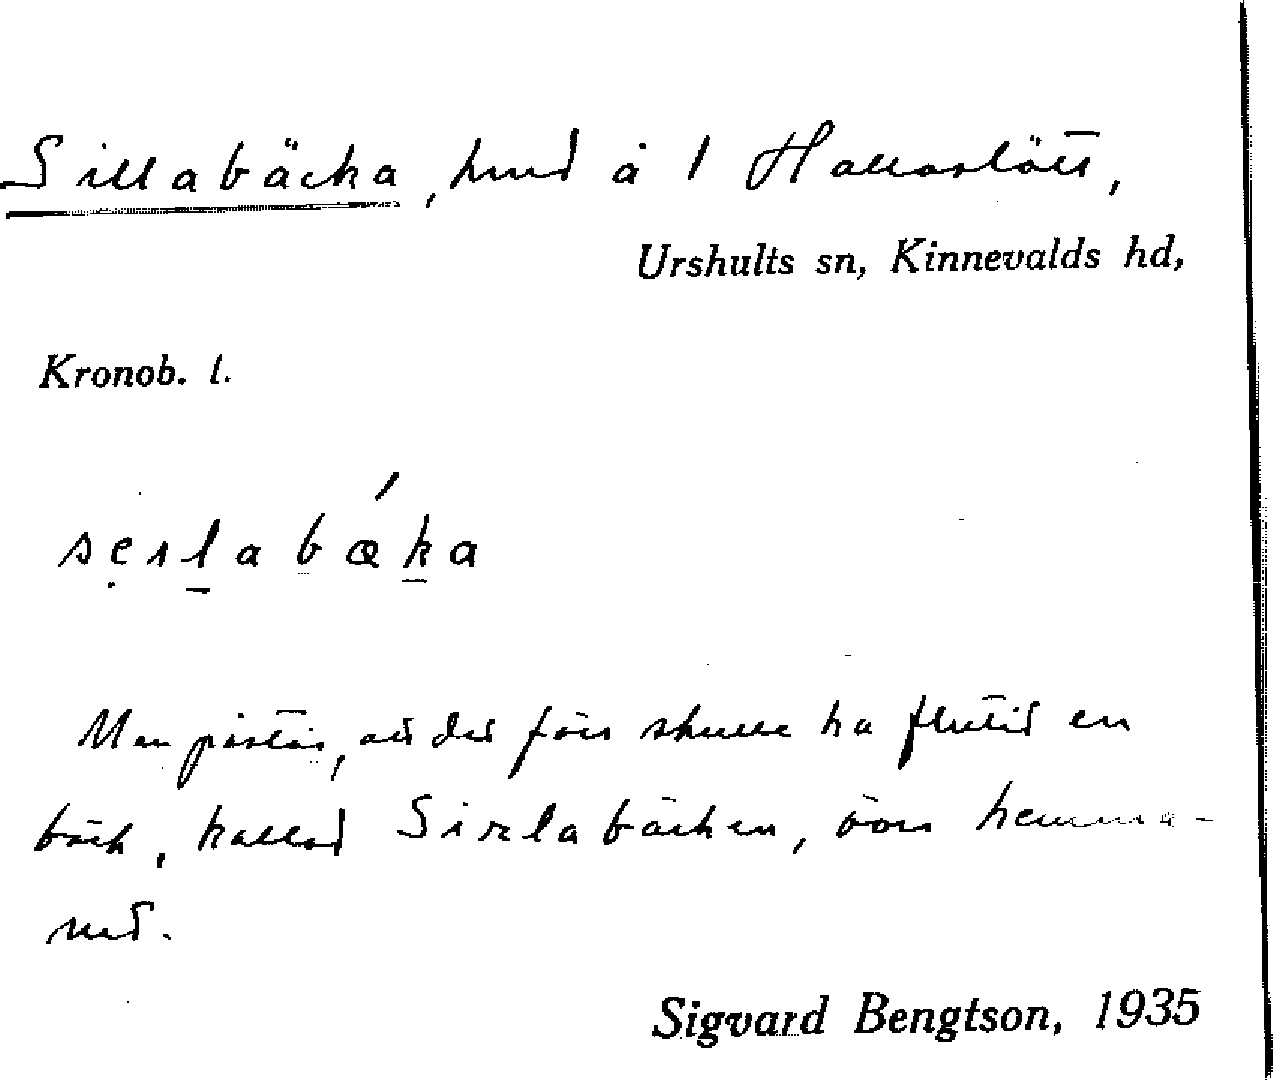 Sillabäcka, hmd å 1 Hallaslätt,
Urshults sn, Kinnevalds hd,
Kronob. l.
sẹslabǽka
Man påstår, att det förr skulle ha flutit en
bäck, kallad Sirlabäcken, över hemma-
net.
Sigvard Bengtson, 1935